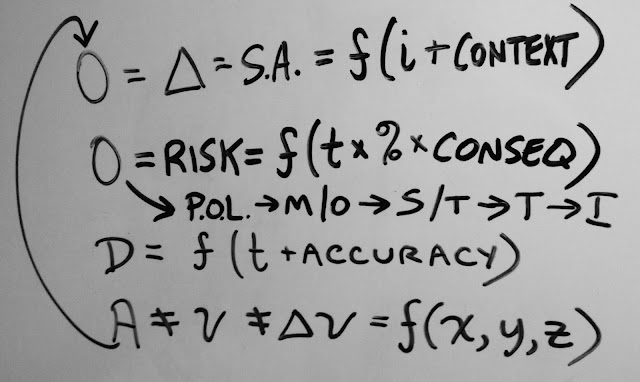 O = Δ = S.A. = f(i + CONTEXT)
O = RISK = f(t × % × CONSEQ)
→ P.O.L. → M/O → S/T → T → I
D = f(t + ACCURACY)
A ≠ V ≠ ΔV = f(x, y, z)